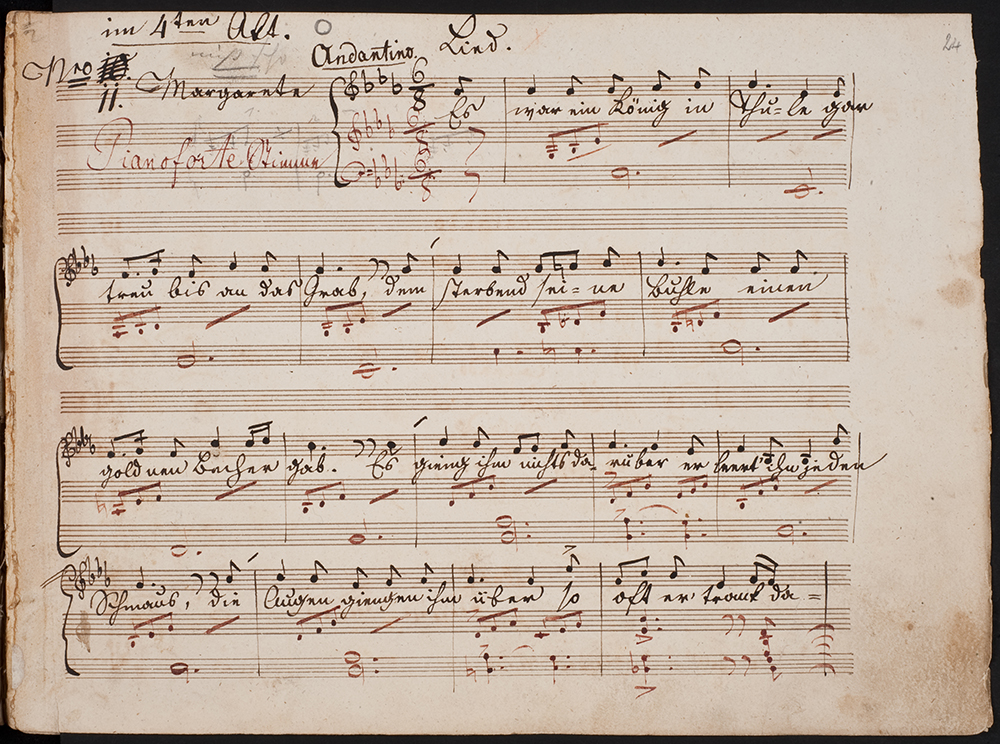 im 4ten Akt.
Andantino. Lied. 24
Nro 10.
11. Margarete
Es war ein König in Thu-le gar
Pianoforte Stimme
treu bis an das Grab, dem sterbend sei-ne Buhle einen
goldnen Becher gab. Es gieng ihm nichts da-rüber er leert' ihn jeden
Schmaus, die Augen giengen ihm über so oft er trank da-